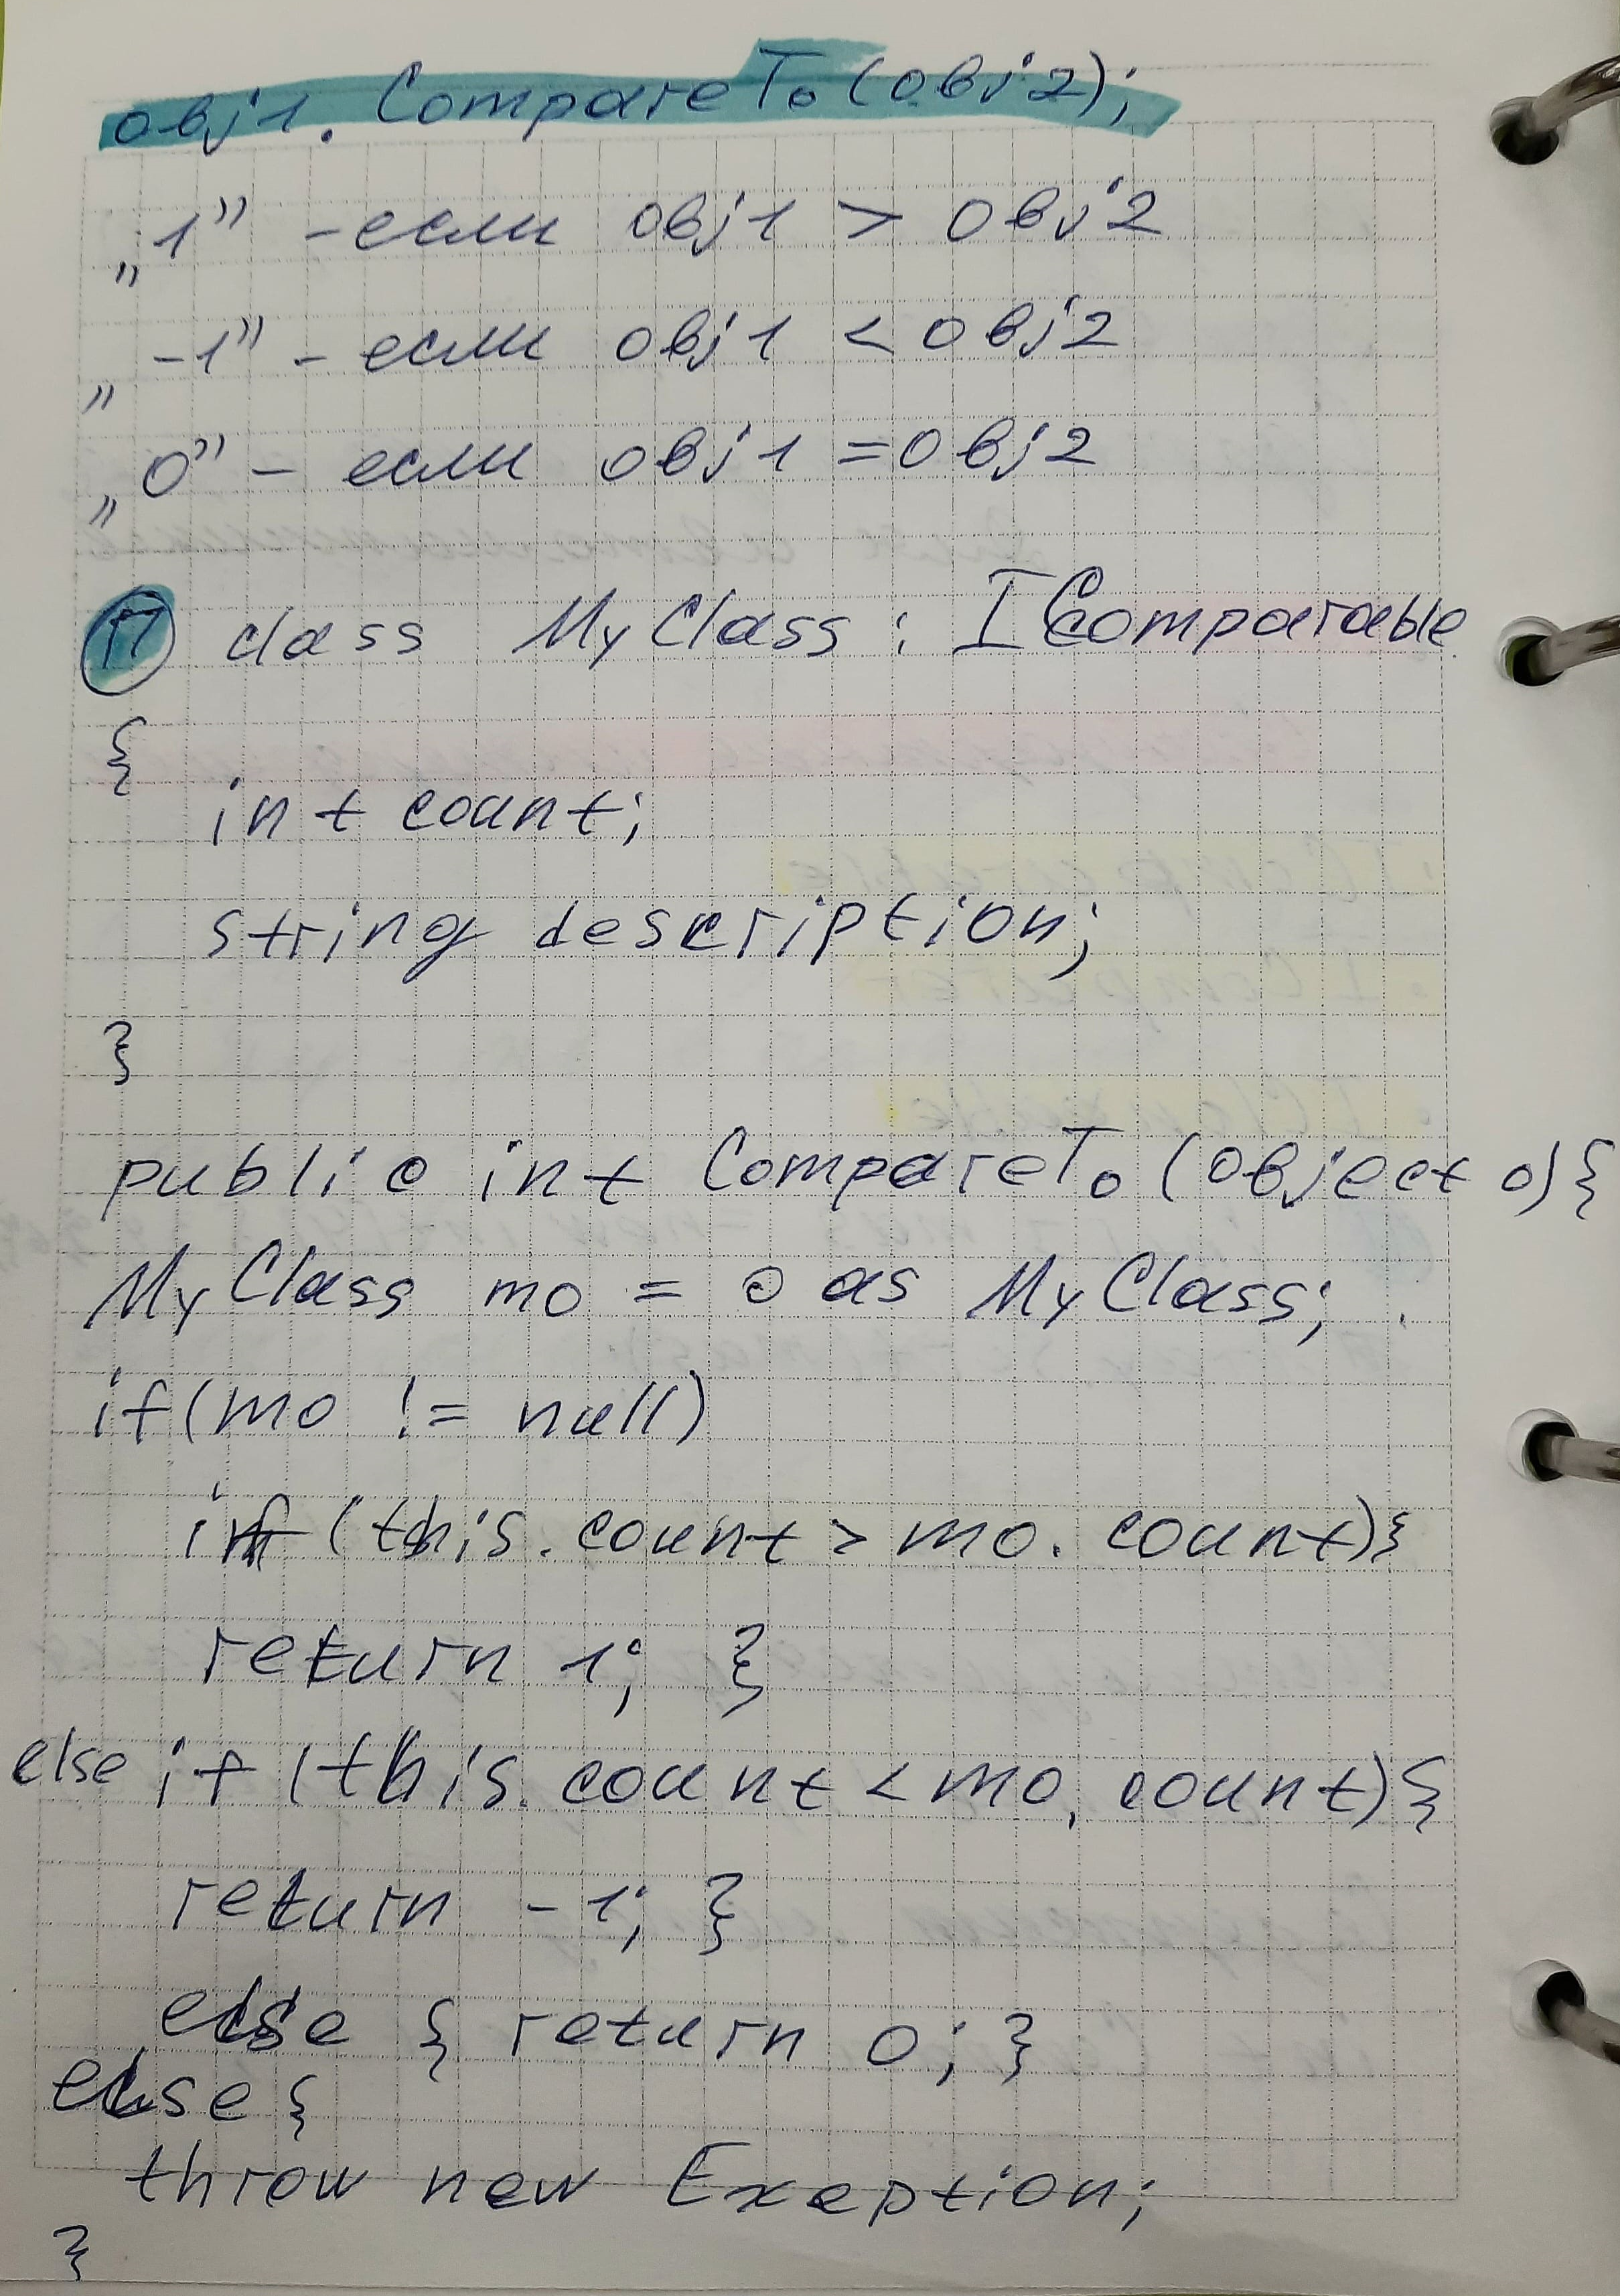 obj1. CompareTo (obj2);
„1” - если obj1 > obj2
„-1” - если obj1 < obj2
„0” - если obj1 = obj2
П class MyClass : IComparable
{
int count;
string description;
}
public int CompareTo (object o) {
MyClass mo = o as MyClass;
if (mo != null)
if (this. count > mo. count) {
return 1; }
else if (this. count < mo. count) {
return -1; }
else { return 0; }
else {
throw new Exeption;
}